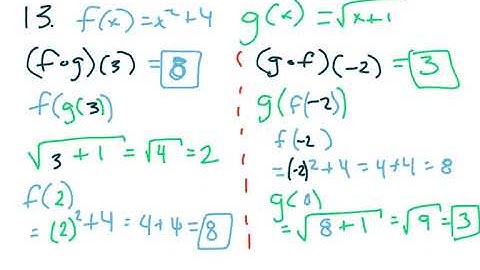 13. f(x)=x²+4 g(x)=√x+1
(f∘g)(3) = 8
f(g(3))
√3+1 = √4 = 2
f(2)
= (2)²+4 = 4+4 = 8
(g∘f)(-2) = 3
g(f(-2))
f(-2)
=(-2)²+4 = 4+4 = 8
g( )
= √8+1 = √9 = 3